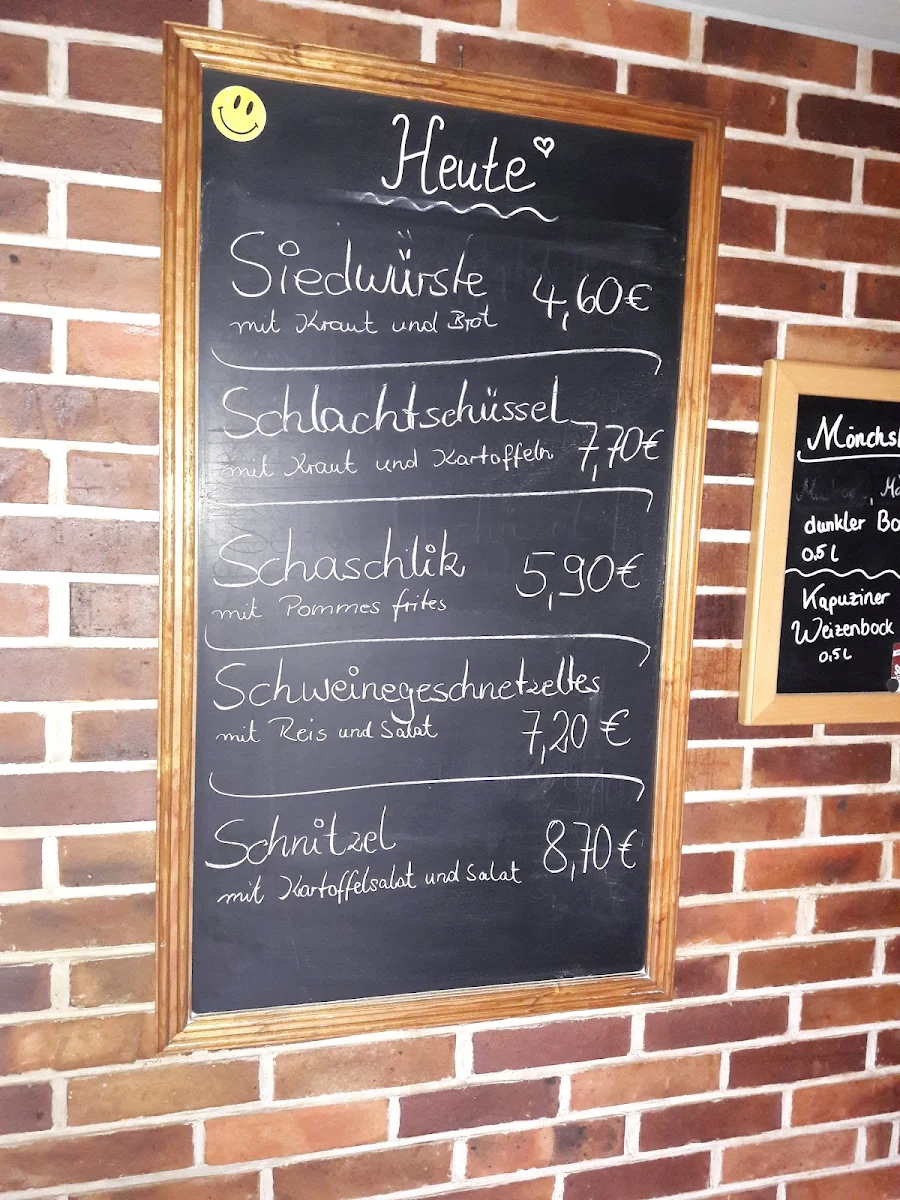 Heute
Siedwürste 4,60€
mit Kraut und Brot
Schlachtschüssel
mit Kraut und Kartoffeln 7,70€
Schaschlik 5,90€
mit Pommes frites
Schweinegeschnetzeltes
mit Reis und Salat 7,20 €
Schnitzel 8,70 €
mit Kartoffelsalat und Salat
dunkler
0,5 l
Kapuziner
Weizenbock
0,5 l